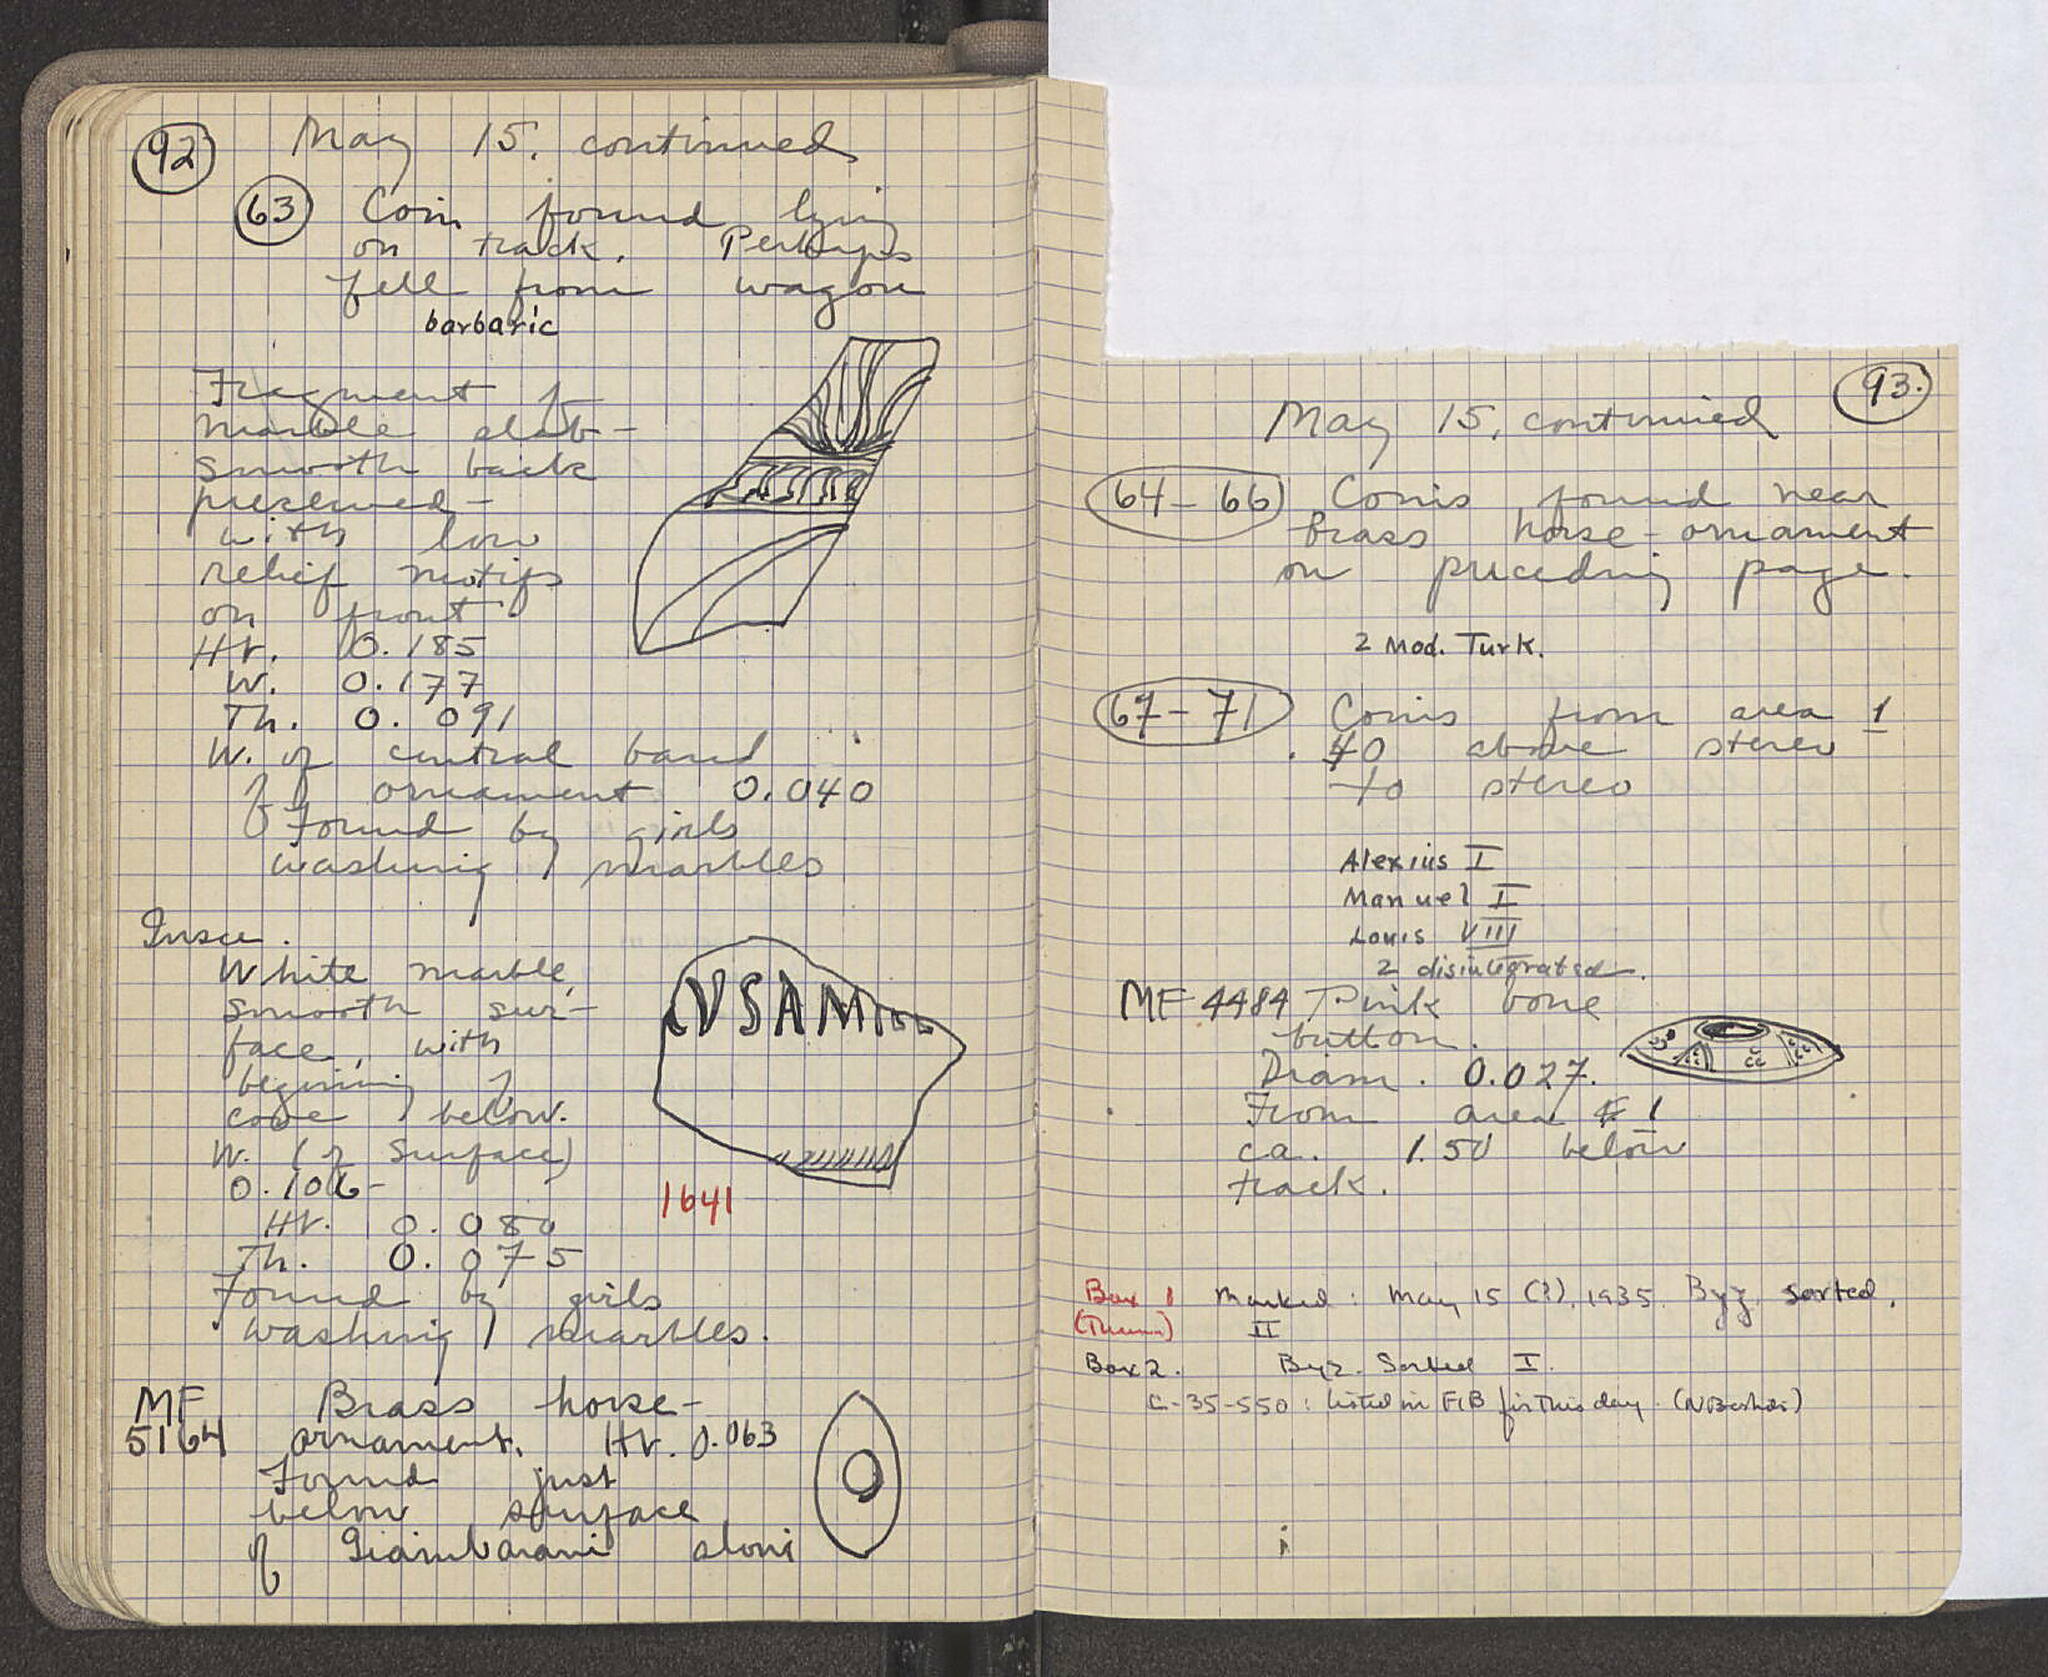 92
May 15, continued
63 Coin found lying
on track. Perhaps
fell from wagon
barbaric
Fragment of
marble slab -
smooth back
preserved -
with low
relief motifs
on front
Ht. 0.185
W. 0.177
Th. 0.091
W. of central band
of ornament 0.040
Found by girls
washing marbles
Inscr.
White marble,
smooth sur-
face, with
beginning of
cove below.
W. (of surface)
0.106-
Ht. 0.080
Th. 0.075
Found by girls
washing marbles.
VSAM
1641
MF
5164
Brass horse-
ornament. Ht. 0.063
Found just
below surface
of Giambarani aloni
93.
May 15, continued
64-66 Coins found near
brass horse-ornament
on preceding page.
2 Mod. Turk.
67-71 Coins from area 1
.40 above stereo
to stereo
Alexius I
Manuel I
Louis VIII
2 disintegrated.
MF 4484 Pink bone
button.
Diam. 0.027.
From area 1
ca. 1.50 below
track.
Box 1 Marked: May 15 (?), 1935. Byz. sorted.
II
Box 2. Byz. Sorted I.
C-35-550: listed in FIB for this day.